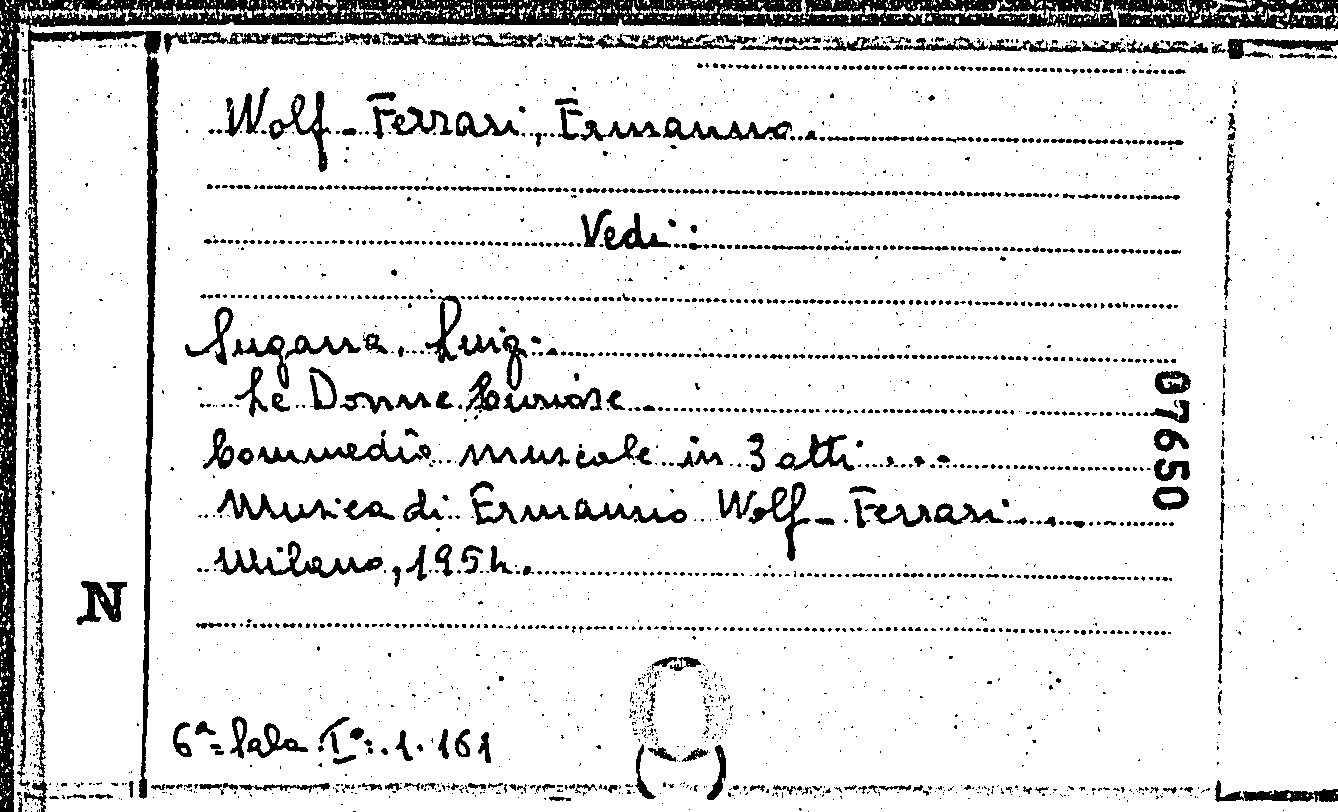 Wolf-Ferrari, Ermanno.
Vedi:
Sugana, Luigi.
Le Donne Curiose.
Commedia musicale in 3 atti...
Musica di Ermanno Wolf-Ferrari...
Milano, 1954.
07650
N
6ª= Sala I°:.1.161